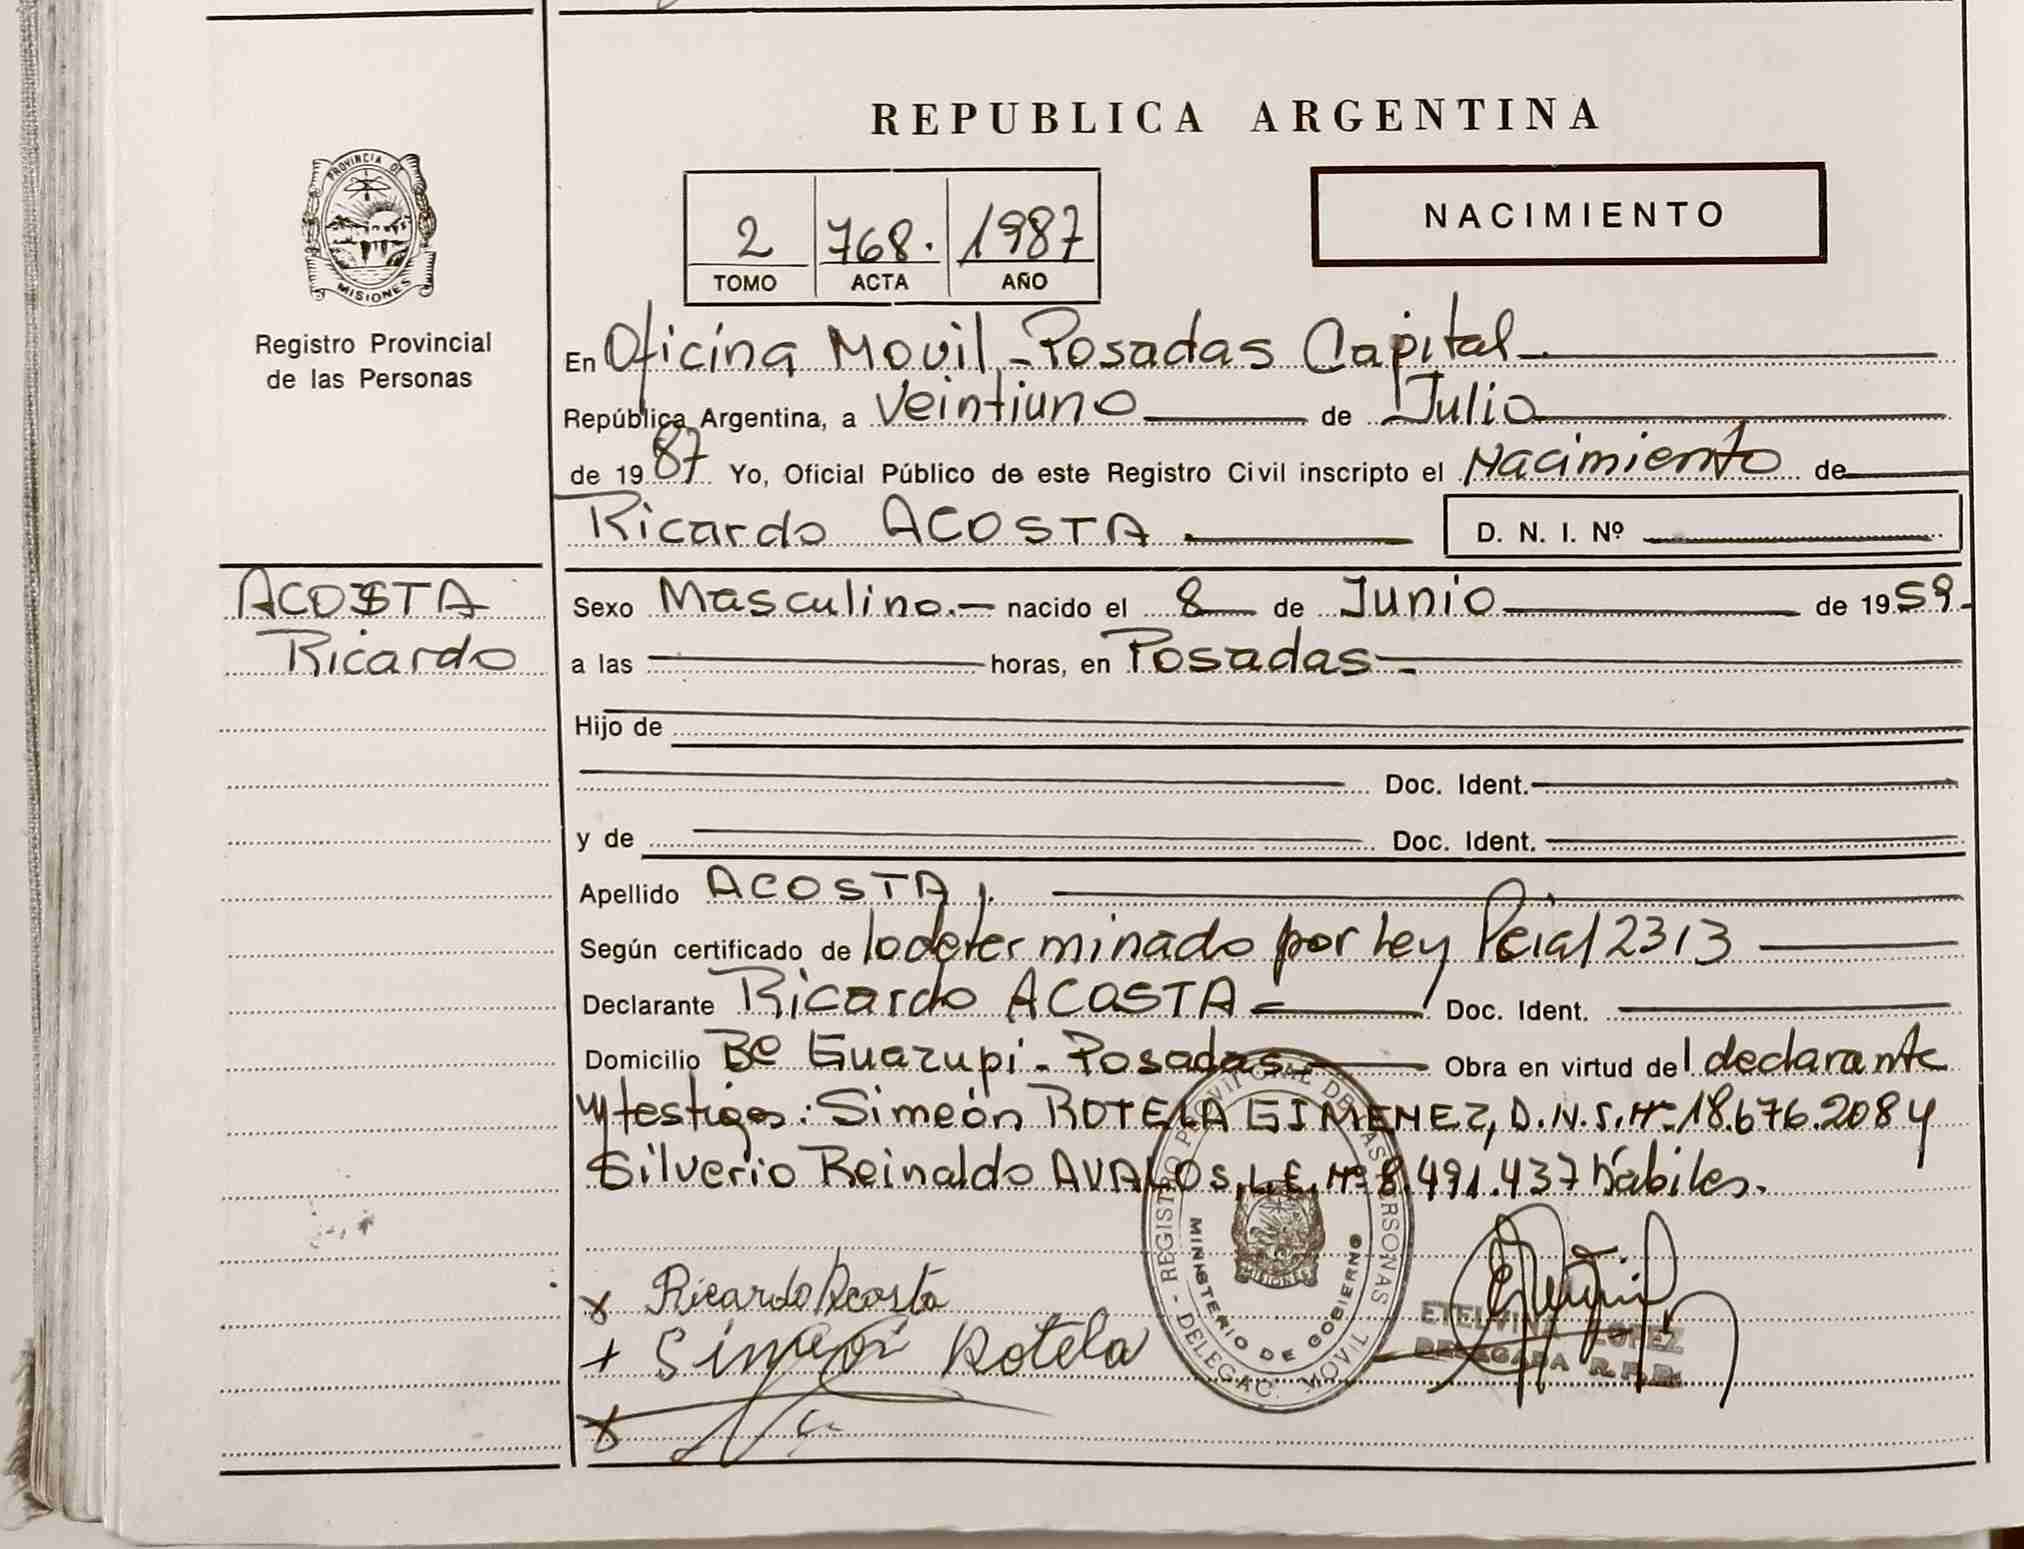 REPUBLICA ARGENTINA
PROVINCIA DE
MISIONES
Registro Provincial
de las Personas
2 768. 1987
TOMO ACTA AÑO
NACIMIENTO
En Oficina Movil - Posadas Capital
República Argentina, a Veintiuno de Julio
de 1987 Yo, Oficial Público de este Registro Civil inscripto el Nacimiento de
Ricardo ACOSTA D. N. I. Nº
ACOSTA
Ricardo
Sexo Masculino.- nacido el 8 de Junio de 1959.
a las horas, en Posadas
Hijo de
Doc. Ident.
y de Doc. Ident.
Apellido ACOSTA.
Según certificado de lo determinado por Ley Pcial 2313
Declarante Ricardo ACOSTA Doc. Ident.
Domicilio Bº Guazupi - Posadas Obra en virtud del declarante
y testigos: Simeón ROTELA GIMENEZ, D.N.I. Nº 18.676.208 y
Silverio Reinaldo AVALOS, L.E. Nº 8.491.437 hábiles.
REGISTRO PROVINCIAL DE LAS PERSONAS - DELEGAC. MOVIL
MINISTERIO DE GOBIERNO
MISIONES
x Ricardo Acosta
+ Simeon Rotela
x
ETELVINA LOPEZ
DELEGADA R.P.P.